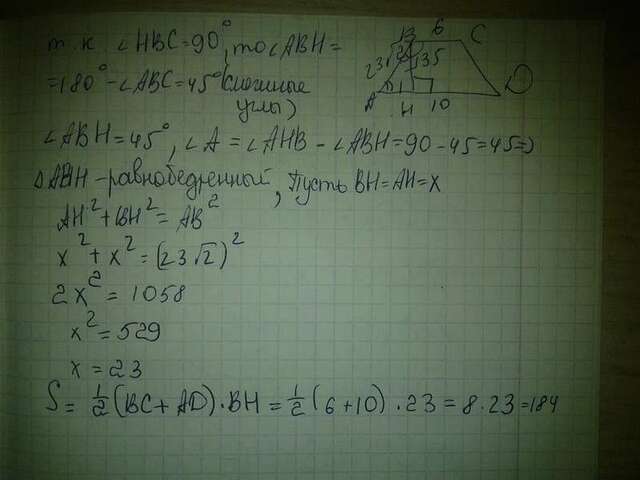 т.к. ∠HBC=90°, то ∠ABH=
=180°-∠ABC=45° (смежные
углы)
∠ABH=45°, ∠A=∠AHB-∠ABH=90-45=45⇒
△ABH-равнобедренный, Пусть BH=AH=x
AH²+BH²=AB²
x²+x²=(23√2)²
2x²=1058
x²=529
x=23
S=½(BC+AD)·BH=½(6+10)·23=8·23=184
B 6 C
23√2 135
A H 10 D